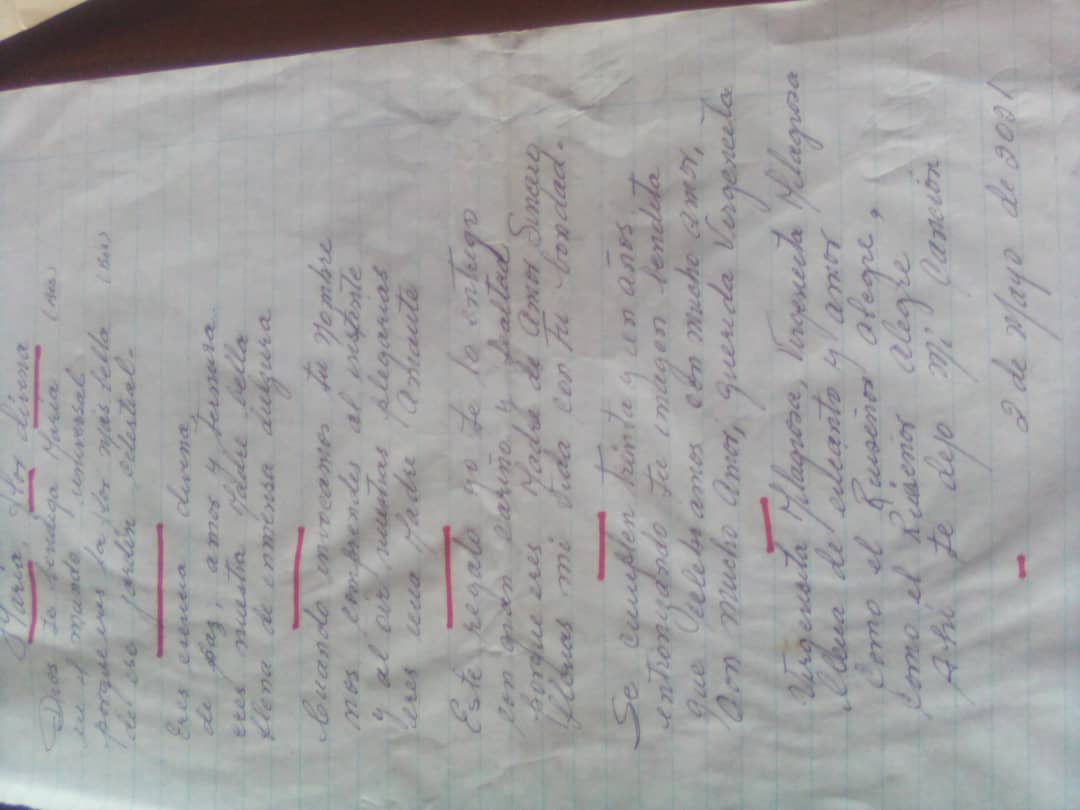 María, flor divina
Dios te bendiga María (bis)
en el mundo universal
porque eres la flor más bella (bis)
de ese jardín celestial.
Eres esencia divina
de paz, amor y ternura
eres nuestra Madre bella
llena de inmensa dulzura
Cuando invocamos tu nombre
nos comprendes al instante
y al oir nuestras plegarias
eres una Madre Amante
Este regalo yo te lo entrego
con gran cariño y lealtad
porque eres Madre de Amor Sincero
llenas mi vida con tu bondad.
Se cumplen treinta y cen años
entronizando tu imagen bendita
que celebramos con mucho amor,
con mucho amor, querida Vergencita
Virgensita Milagrosa, Virgensita Milagrosa
llena de encanto y amor
como el Ruiseñor alegre,
como el Ruiseñor alegre
Ahí te dejo mi canción
2 de Mayo de 2021